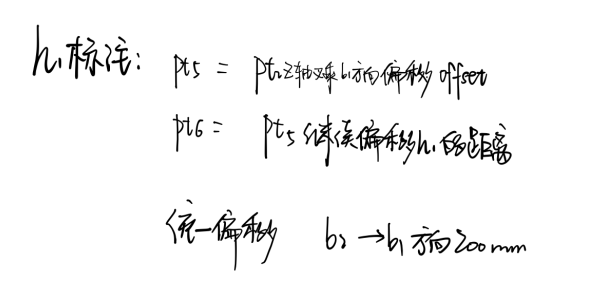 h₁标注: pt5 = pt2z轴叉乘b₁方向偏移offset
pt6 = pt5继续偏移h₁的距离
统一偏移 b₂→b₁方向200mm